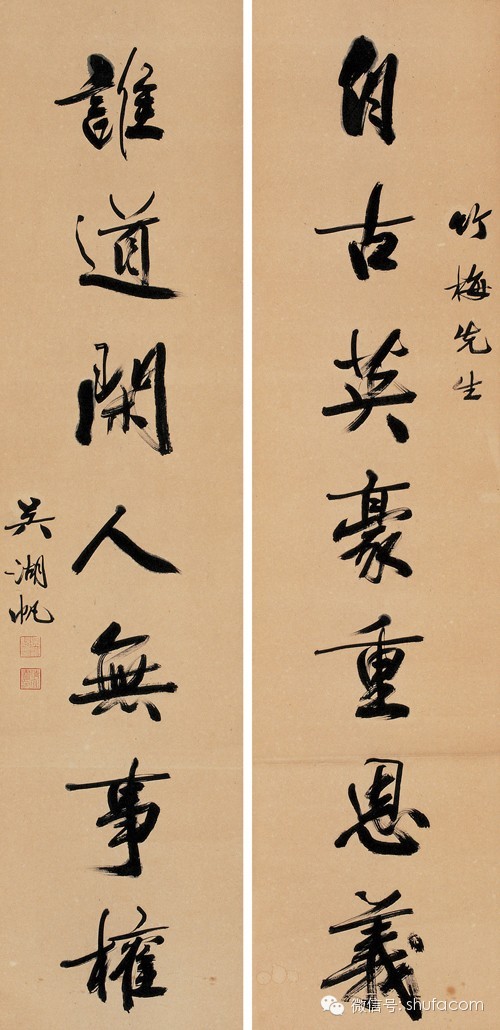 竹梅先生
自古英豪重恩義
誰道閑人無事權
吳湖帆
微信号: shufacom